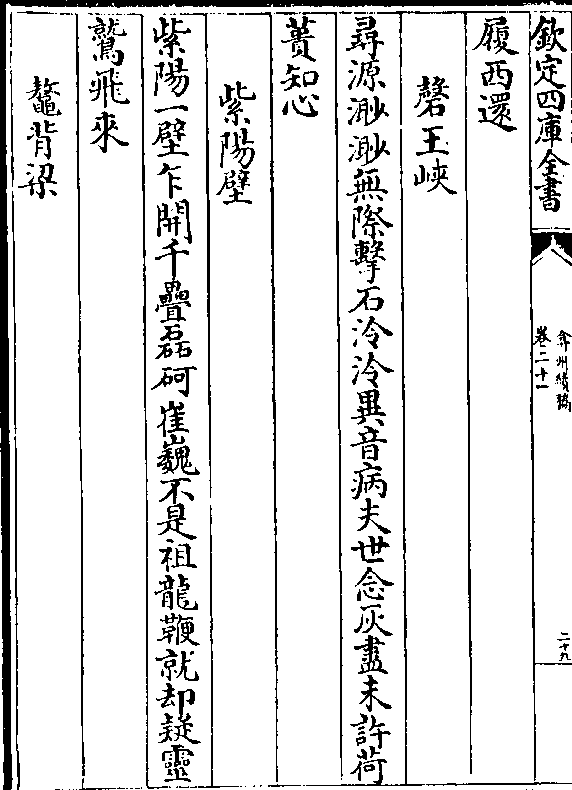 欽定四庫全書
弇州續稿
卷二十一
二十九
履西還
磬玉峽
尋源渺渺無際擊石泠泠異音病夫世念灰盡未許荷
蕢知心
紫陽壁
紫陽一壁乍開千疊磊砢崔巍不是祖龍鞭就却疑靈
鷲飛來
鼇背梁